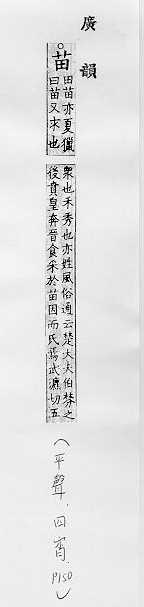 廣韻
苗
田苗亦夏獵
曰苗又求也
衆也禾秀也亦姓風俗通云楚大夫伯棼之
後賁皇奔晉食采於苗因而氏焉武瀌切五
（平聲．四宵．P150）